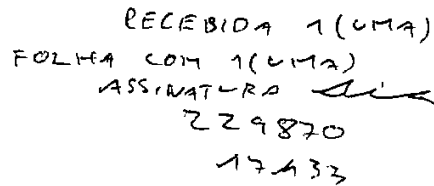 RECEBIDA 1 (UMA)
FOLHA COM 1 (UMA)
ASSINATURA
229870
17433